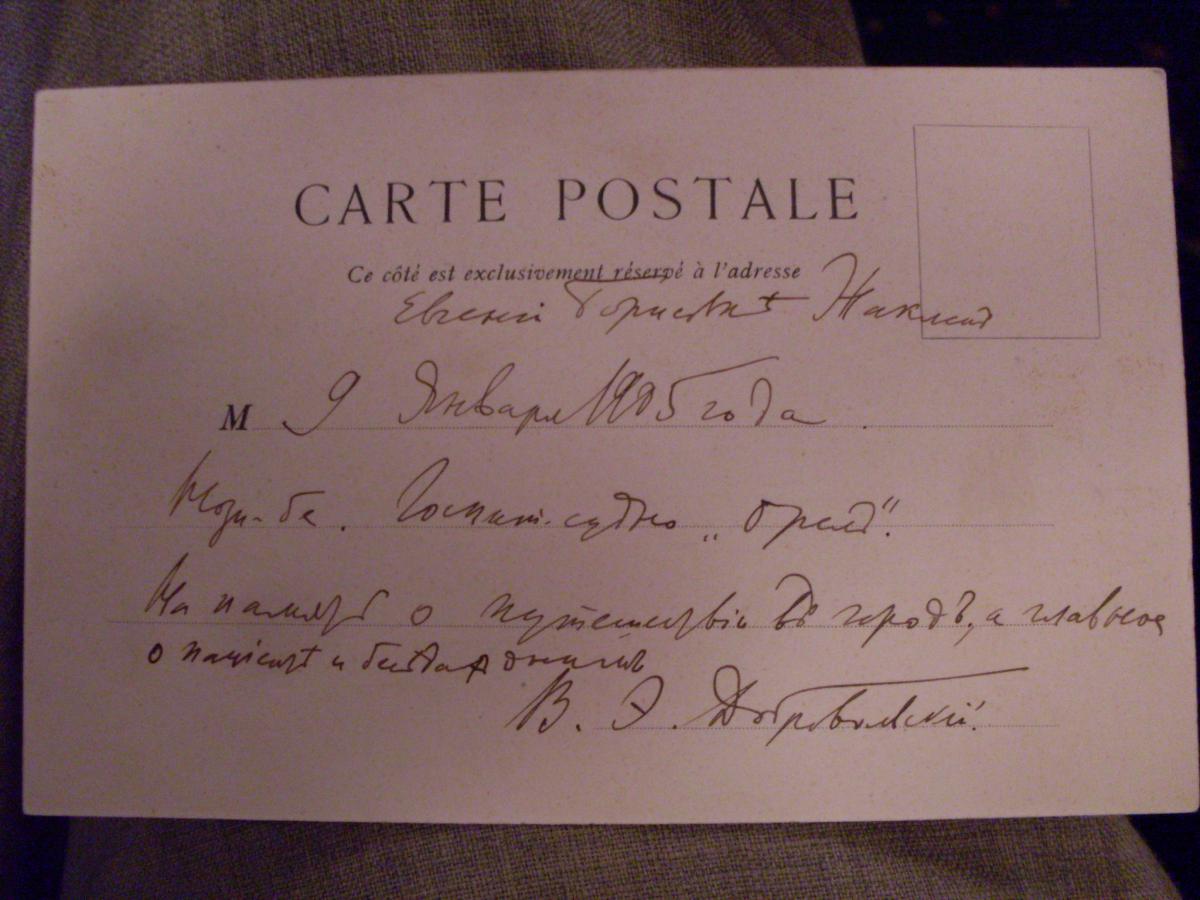 CARTE POSTALE
Ce côté est exclusivement réservé à l'adresse
Евгеній Борисовичъ
М 9 Января 1905 года
Носи-бе. Госпит. судно „Орелъ".
На память о путешествіи въ городъ, а главное
о
В. Э. Добровольскій.